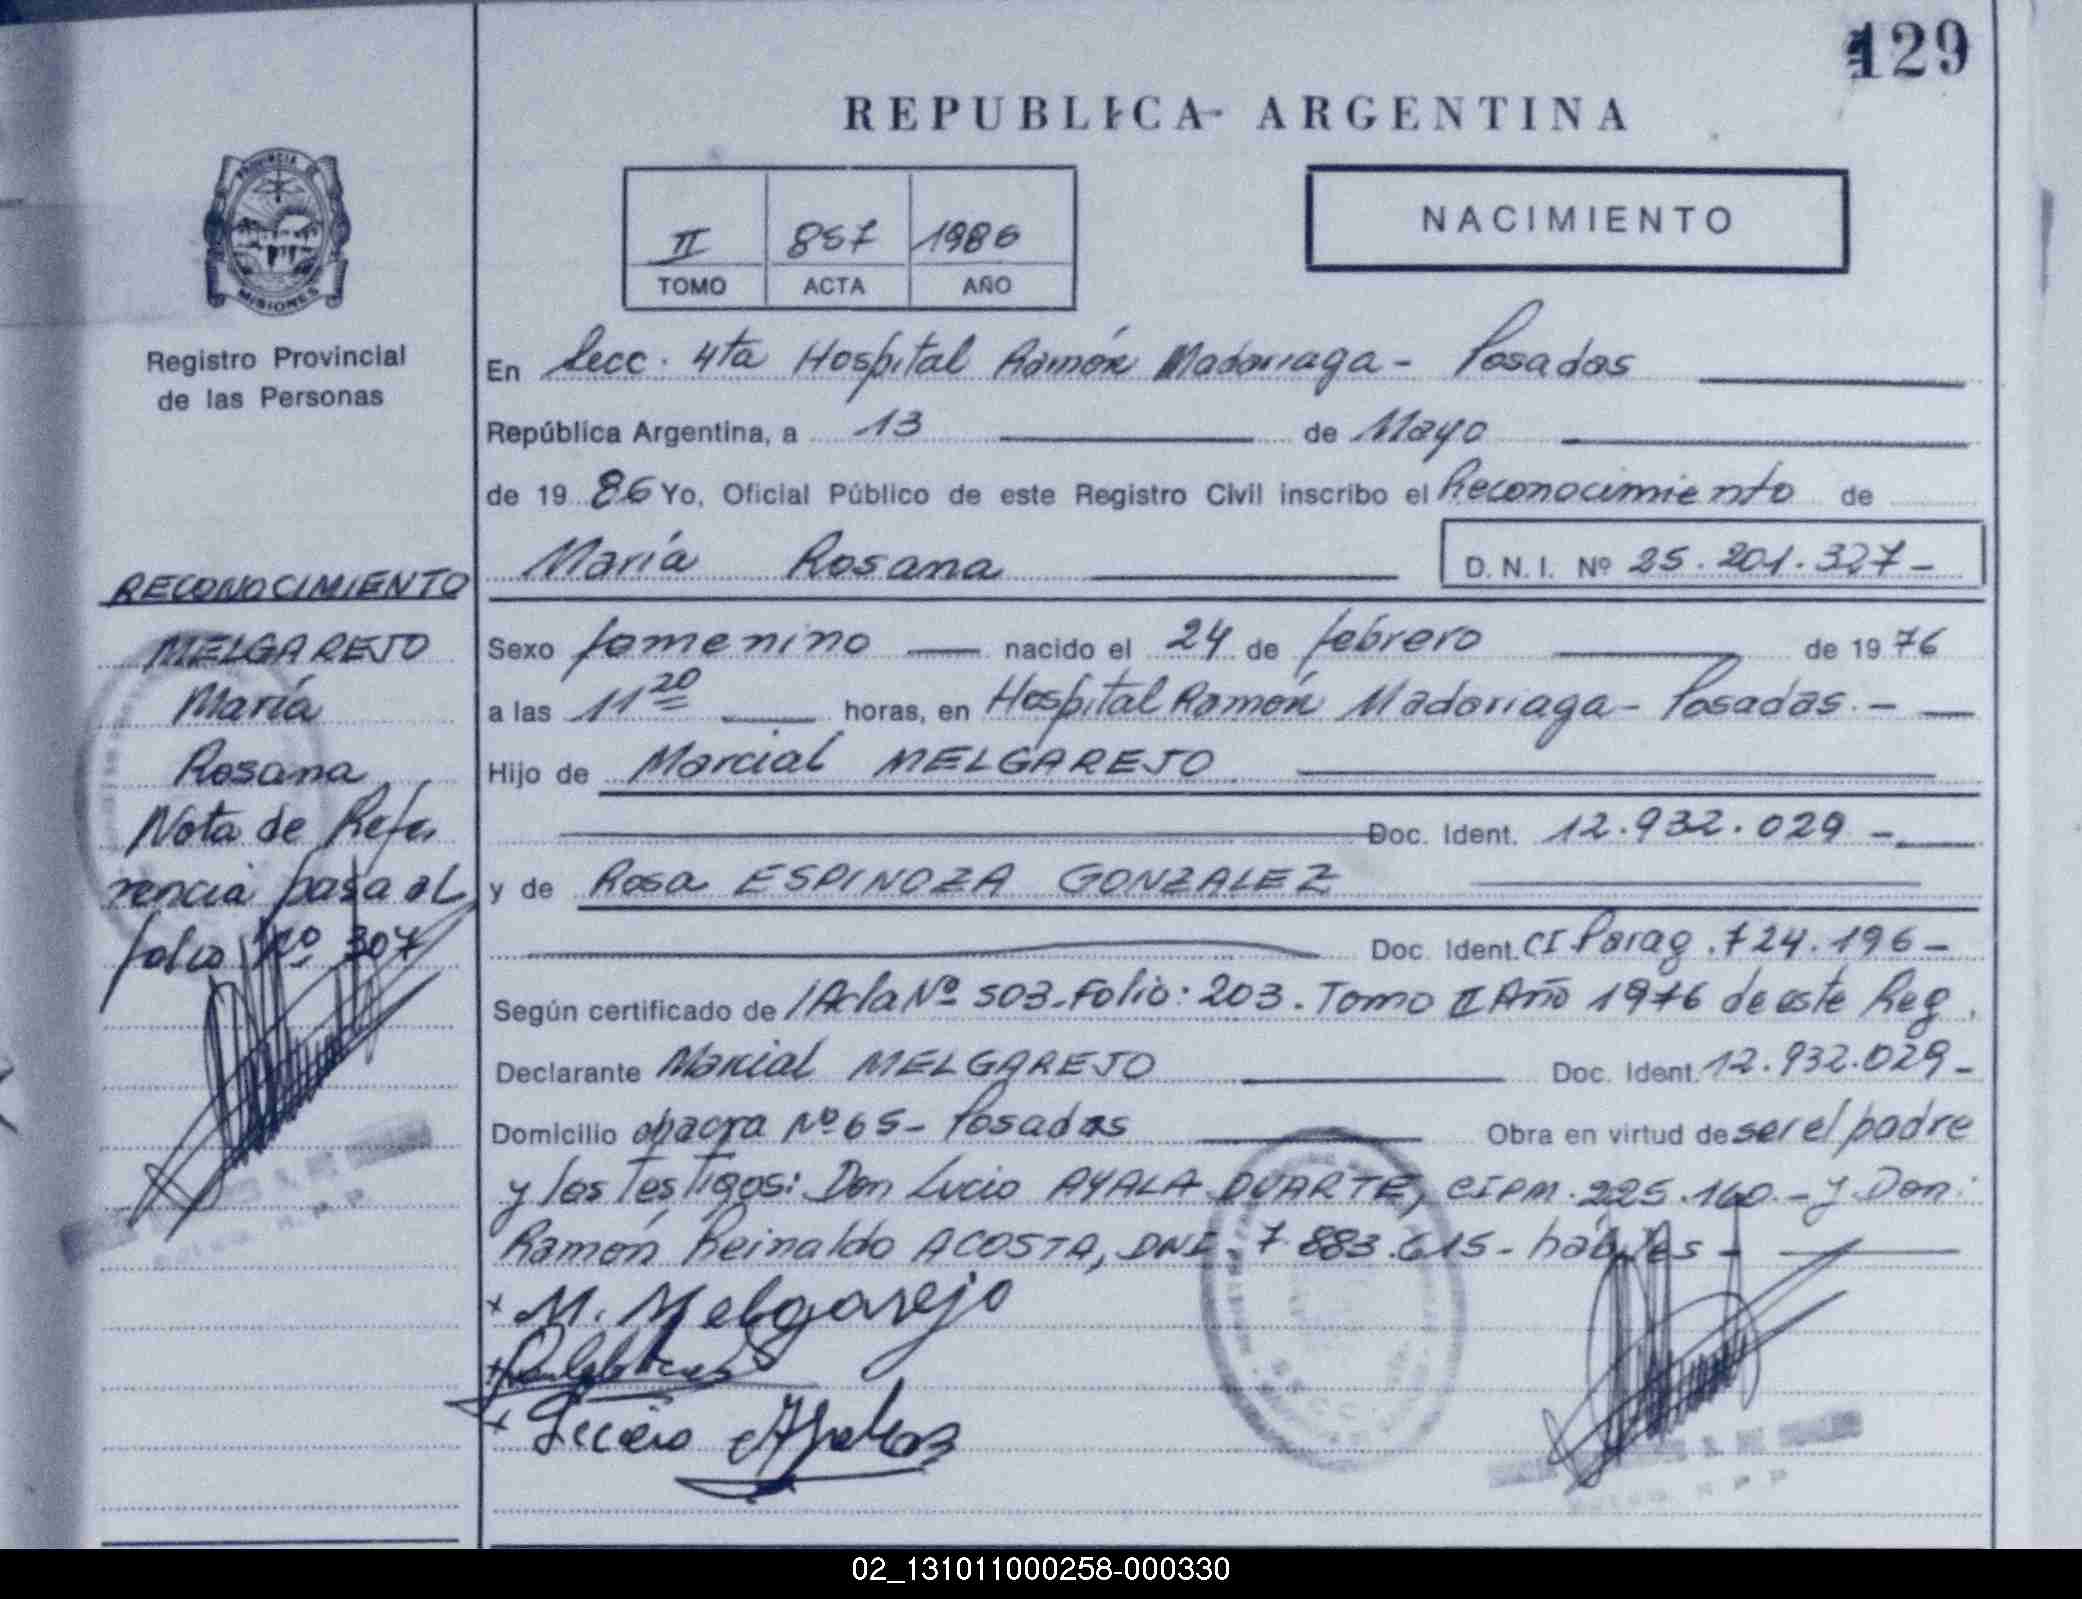 129
REPUBLICA ARGENTINA
PROVINCIA DE
MISIONES
II 857 1986
TOMO ACTA AÑO
NACIMIENTO
Registro Provincial
de las Personas
En Secc. 4ta Hospital Ramón Madariaga - Posadas
República Argentina, a 13 de Mayo
de 1986 Yo, Oficial Público de este Registro Civil inscribo el Reconocimiento de
María Rosana D.N.I. Nº 25.201.327-
RECONOCIMIENTO
MELGAREJO
María
Rosana
Nota de Refe
rencia pasa al
folio Nº 307
Sexo femenino nacido el 24 de febrero de 1976
a las 11 20 horas, en Hospital Ramón Madariaga - Posadas.-
Hijo de Marcial MELGAREJO
Doc. Ident. 12.932.029 -
y de Rosa ESPINOZA GONZALEZ
Doc. Ident. CI Parag. 724.196-
Según certificado de /Acta Nº 503-Folio: 203. Tomo II Año 1976 de este Reg.
Declarante Marcial MELGAREJO Doc. Ident. 12.932.029-
Domicilio chacra Nº 65- Posadas Obra en virtud de ser el padre
y los testigos: Don Lucio AYALA DUARTE, CIPM. 225.160.- y Don:
Ramón Reinaldo ACOSTA, DNI. 7.883.615- hábiles-
+ M. Melgarejo
+
+ Lucio Ayala
02_131011000258-000330